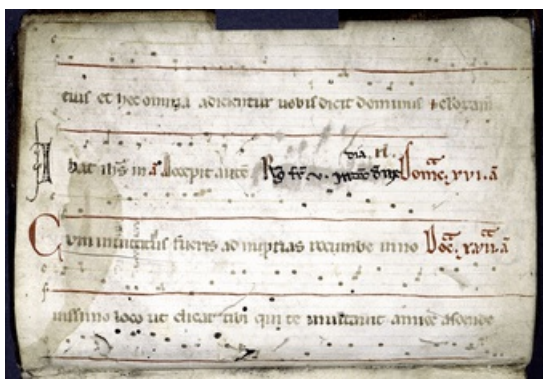 eius et hec omnia adicientur uobis dicit dominus
Ibat ihs in a Accepit aute Domc xvi a
Cvm inuitatus fueris ad nuptias recumbe in no Doc xvii a
uissimo loco ut dicat tibi qui te inuitauit amice ascende